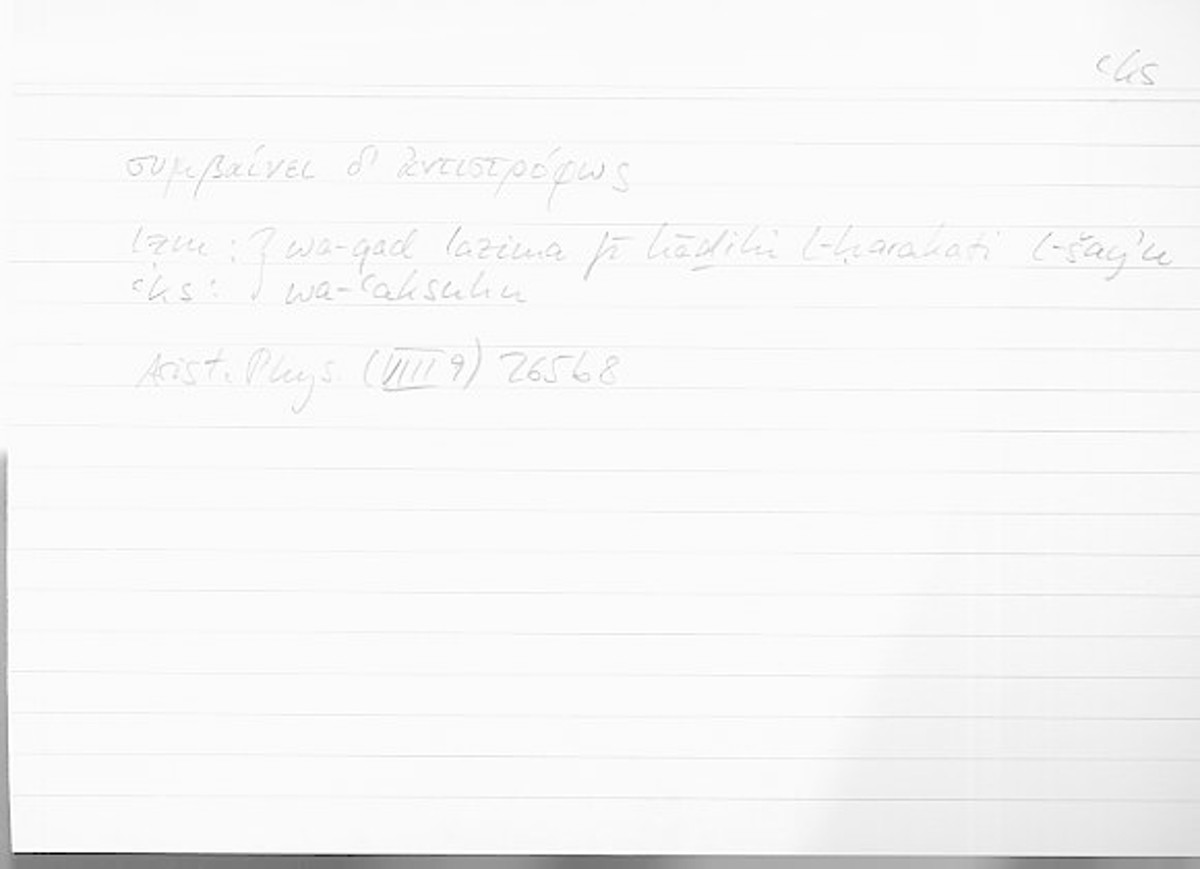 ʿks
συμβαίνει δ' ἀντιστρόφως
lzm : } wa-qad lazima fī hāḏihi l-ḥarakati l-šayʾu
ʿks : } wa-ʿaksuhu
Arist. Phys. (VIII 9) 265b8